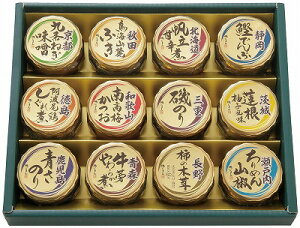 京都
九条ねぎ
味噌
秋田
鳥海山麓
ふき
北海道
帆立
甘辛煮
静岡
鰹でんぶ
徳島
阿波尾鶏
しぐれ煮
和歌山
南高梅
かつお
三重
磯のり
茨城
蓮根
鹿児島
青さ
のり
青森
牛蒡
やわらか煮
長野
柿の木茸
瀬戸内
ちりめん
山椒